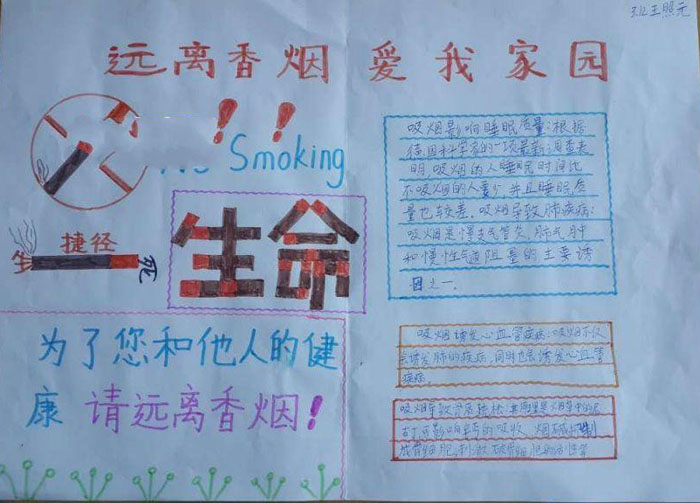 班王照元
远离香烟 爱我家园
!!
Smoking
生命
捷径
生
死
吸烟影响睡眠质量:根据
德国科学家的一项最新调查表
明,吸烟的人睡眠时间比
不吸烟的人要少,并且睡眠质
量也较差。吸烟导致肺疾病:
吸烟是慢支气管炎、肺气肿
和慢性气道阻塞的主要诱
因之一.
为了您和他人的健
康 请远离香烟!
吸烟诱发心血管疾病:吸烟不仅
会诱发肺的疾病,同时也会诱发心血管
疾病
吸烟导致骨质疏松
的吸收